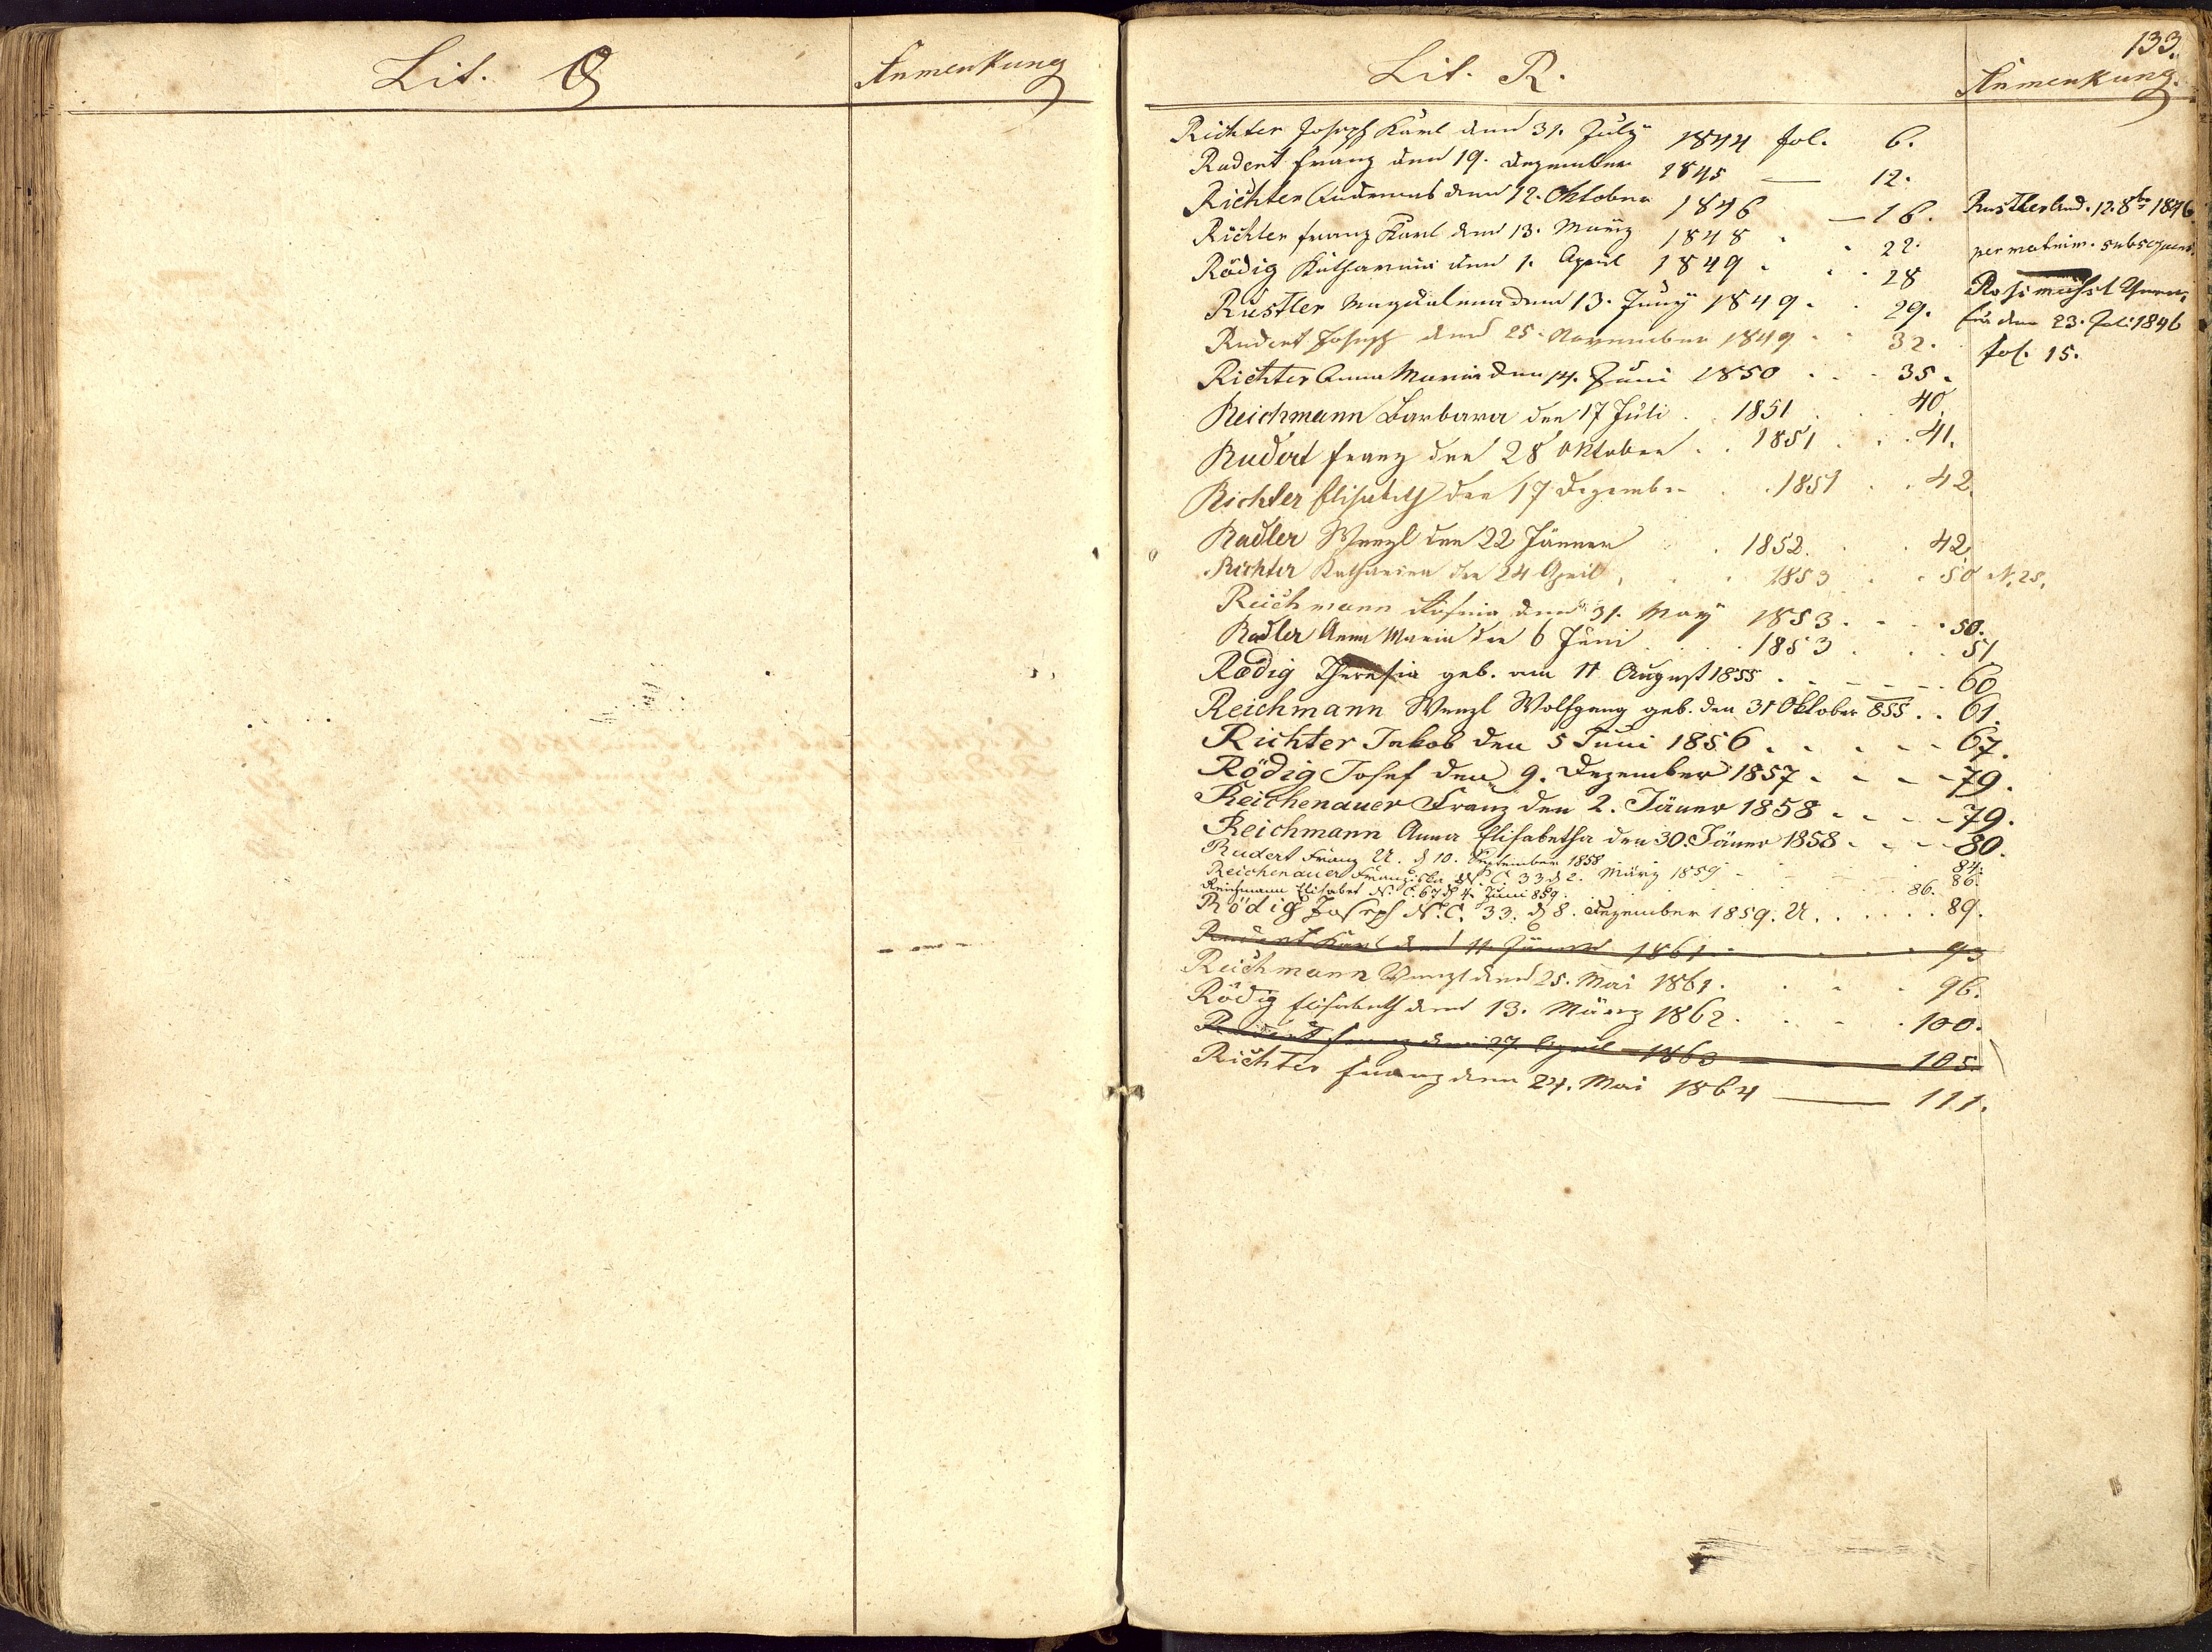 Lit. Q
Anmerkung
133.
Lit. R.
Anmerkung.
Richter Joseph Karl den 31. July 1844 fol. 6.
Rudert Franz den 19. Dezember 1845 — 12.
Richter Andreas den 12. Oktober 1846 — 16.
Richter Franz Karl den 13. März 1848 . . 22.
Rödig Katharina den 1. April 1849 . . . 28
Rustler Magdalena den 13. Juny 1849 . . 29.
Rudert Joseph den 25. November 1849 . . 32.
Richter Anna Maria den 14. Juni 1850 . . . 35.
Reichmann Barbara den 17 Juli . . 1851 . . . 40.
Rudert Franz den 28 Oktober . . 1851 . . . 41.
Richter Elisabeth den 17 Dezember . . 1851 . . 42.
Radler Wenzl den 22 Jänner . 1852. . . 42
Richter Katharina den 24 April . . . 1853 . . 50 N. 25.
Reichmann den 31. May 1853 . . . 50.
Radler Anna Maria den 6 Juni . . . 1853 . . . 51
Rödig Theresia geb. am 11 August 1855 . - - - - . 60
Reichmann Wenzl Wolfgang geb. den 31 Oktober 855 . . 61.
Richter Jakob den 5 Juni 1856 . . . - - 67.
Rödig Josef den 9. Dezember 1857 - - - - 79.
Reichenauer Franz den 2. Jäner 1858 - - - - 79.
Reichmann Anna Elisabetha den 30. Jäner 1858 - - - 80.
Rudert Franz U. d 10. September 1858 84.
Reichenauer Franziska N. C. 33 d 2. März 1859 - 86.
Reichmann Elisabet N. C. 67 d 4. Juni 859. 86.
Rödig Joseph N. C. 33. d 8. Dezember 1859. U. . . . . . 89.
Rudert Karl den 11. Jänner 1861 . . . 93
Reichmann Wenzl den 25. Mai 1861. . . . 96.
Rödig Elisabeth den 13. März 1862. . . - . 100.
Rudert Franz den 27. April 1863 — 105.
Richter Franz den 24. Mai 1864 — 111.
Rustler And. 12. 8br 1846
per matrim. subsequens.
den 23. Juli 1846
fol. 15.